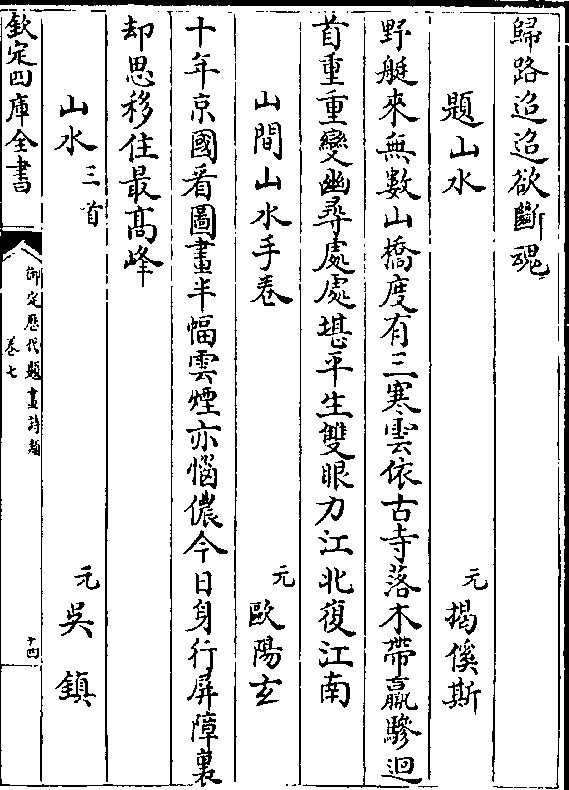 歸路迢迢欲斷魂
題山水 元 揭傒斯
野艇來無數山橋度有三寒雲依古寺落木帶羸驂迴
首重重變幽尋處處堪平生雙眼力江北復江南
山間山水手卷 元 歐陽玄
十年京國看圖畫半幅雲煙亦惱儂今日身行屏障裏
却思移住最高峰
山水三首 元 吳鎮
欽定四庫全書 御定歷代題畫詩類 卷七 十四